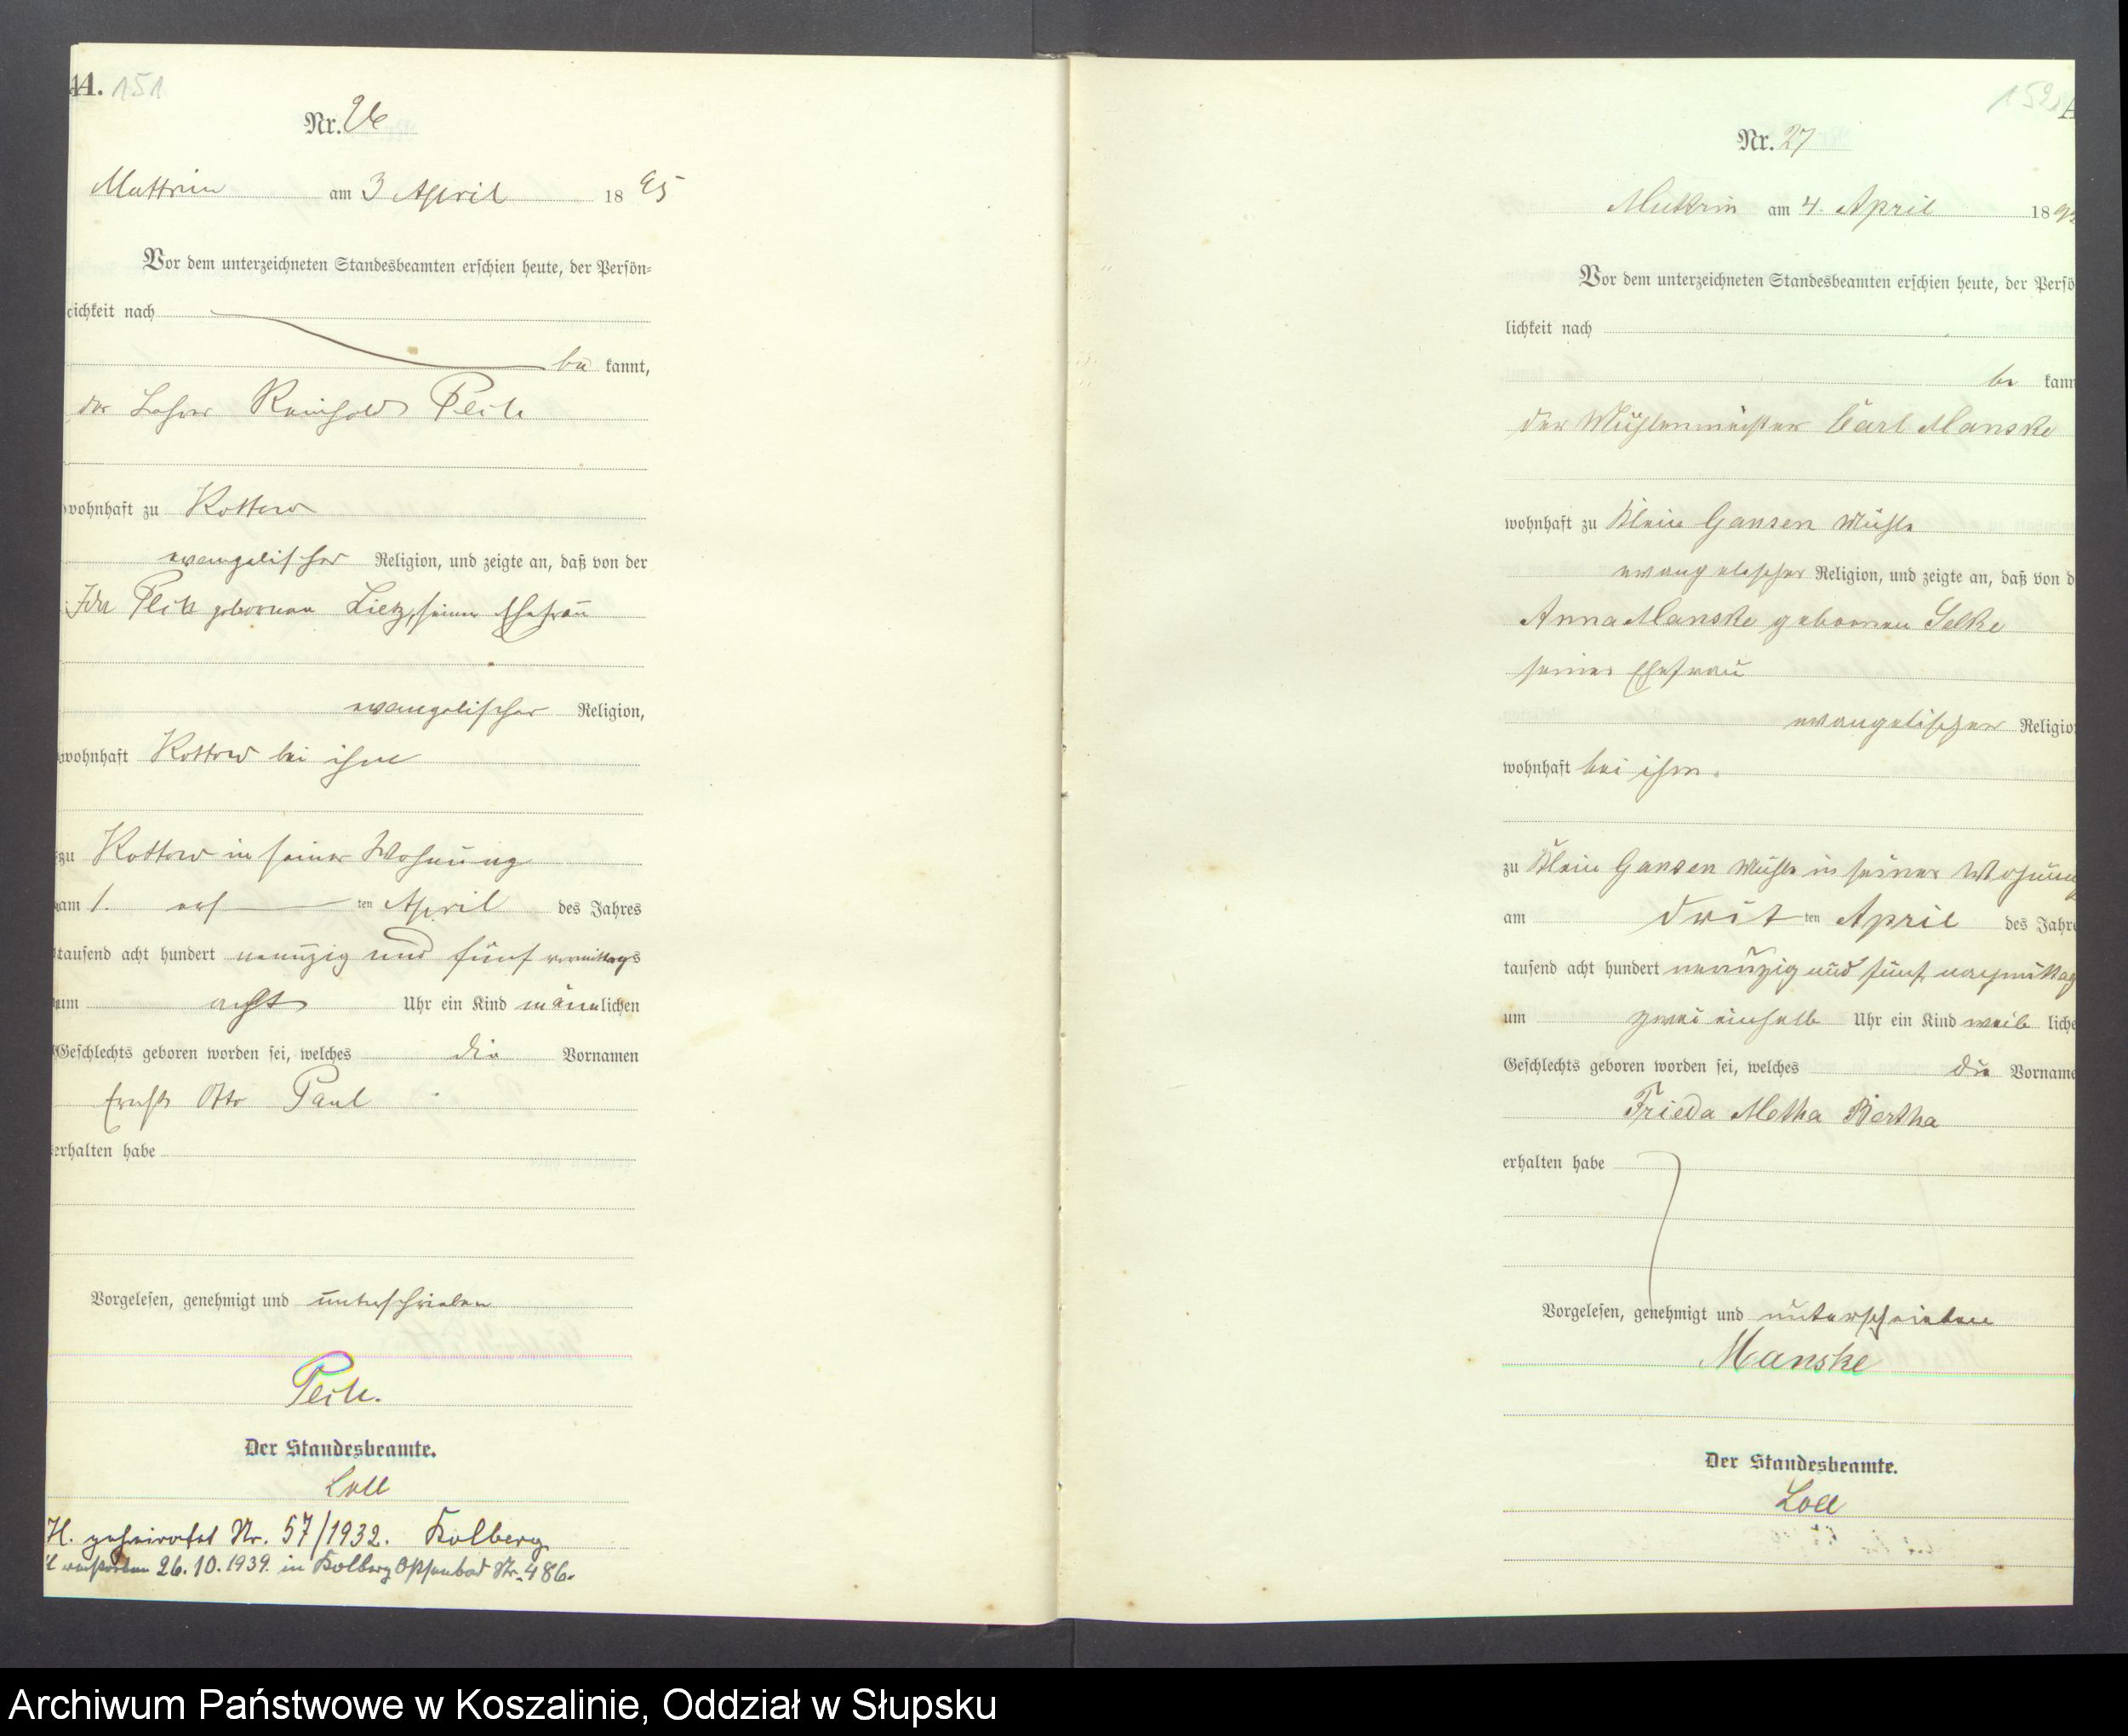 A. 151
Nr. 26
Muttrin am 3 April 1895
Vor dem unterzeichneten Standesbeamten erschien heute, der Persön-
lichkeit nach
be kannt,
der Lehrer Reinhold
wohnhaft zu Kottow
evangelischer Religion, und zeigte an, daß von der
Ida geborenen Lietz, seiner Ehefrau
evangelischer Religion,
wohnhaft Kottow bei ihm
zu Kottow in seiner Wohnung
am 1. ers ten April des Jahres
tausend acht hundert neunzig und fünf vormittags
um acht Uhr ein Kind männlichen
Geschlechts geboren worden sei, welches die Vornamen
Ernst Otto Paul
erhalten habe
Vorgelesen, genehmigt und unterschrieben
Der Standesbeamte.
Loll
H. geheiratet Nr. 57/1932. Kolberg
verstorben 26.10.1939. in Kolberg Ostseebad Nr. 486.
152 A
Nr. 27
Muttrin am 4. April 189
Vor dem unterzeichneten Standesbeamten erschien heute, der Persö
lichkeit nach
be kann
der Mühlenmeister Carl Manske
wohnhaft zu Klein Gansen Mühle
evangelischer Religion, und zeigte an, daß von d
Anna Manske geborenen Selke
seiner Ehefrau
evangelischer Religion
wohnhaft bei ihm.
zu Klein Gansen Mühle in seiner Wohnung
am drit ten April des Jahre
tausend acht hundert neunzig und fünf nachmittag
um zwei einhalb Uhr ein Kind weib liche
Geschlechts geboren worden sei, welches die Vorname
Frieda Metha Bertha
erhalten habe
Vorgelesen, genehmigt und unterschrieben
Manske
Der Standesbeamte.
Loll
Archiwum Państwowe w Koszalinie, Oddział w Słupsku